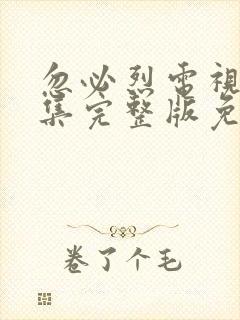 忽必烈電視
集完整版免
卷了个毛